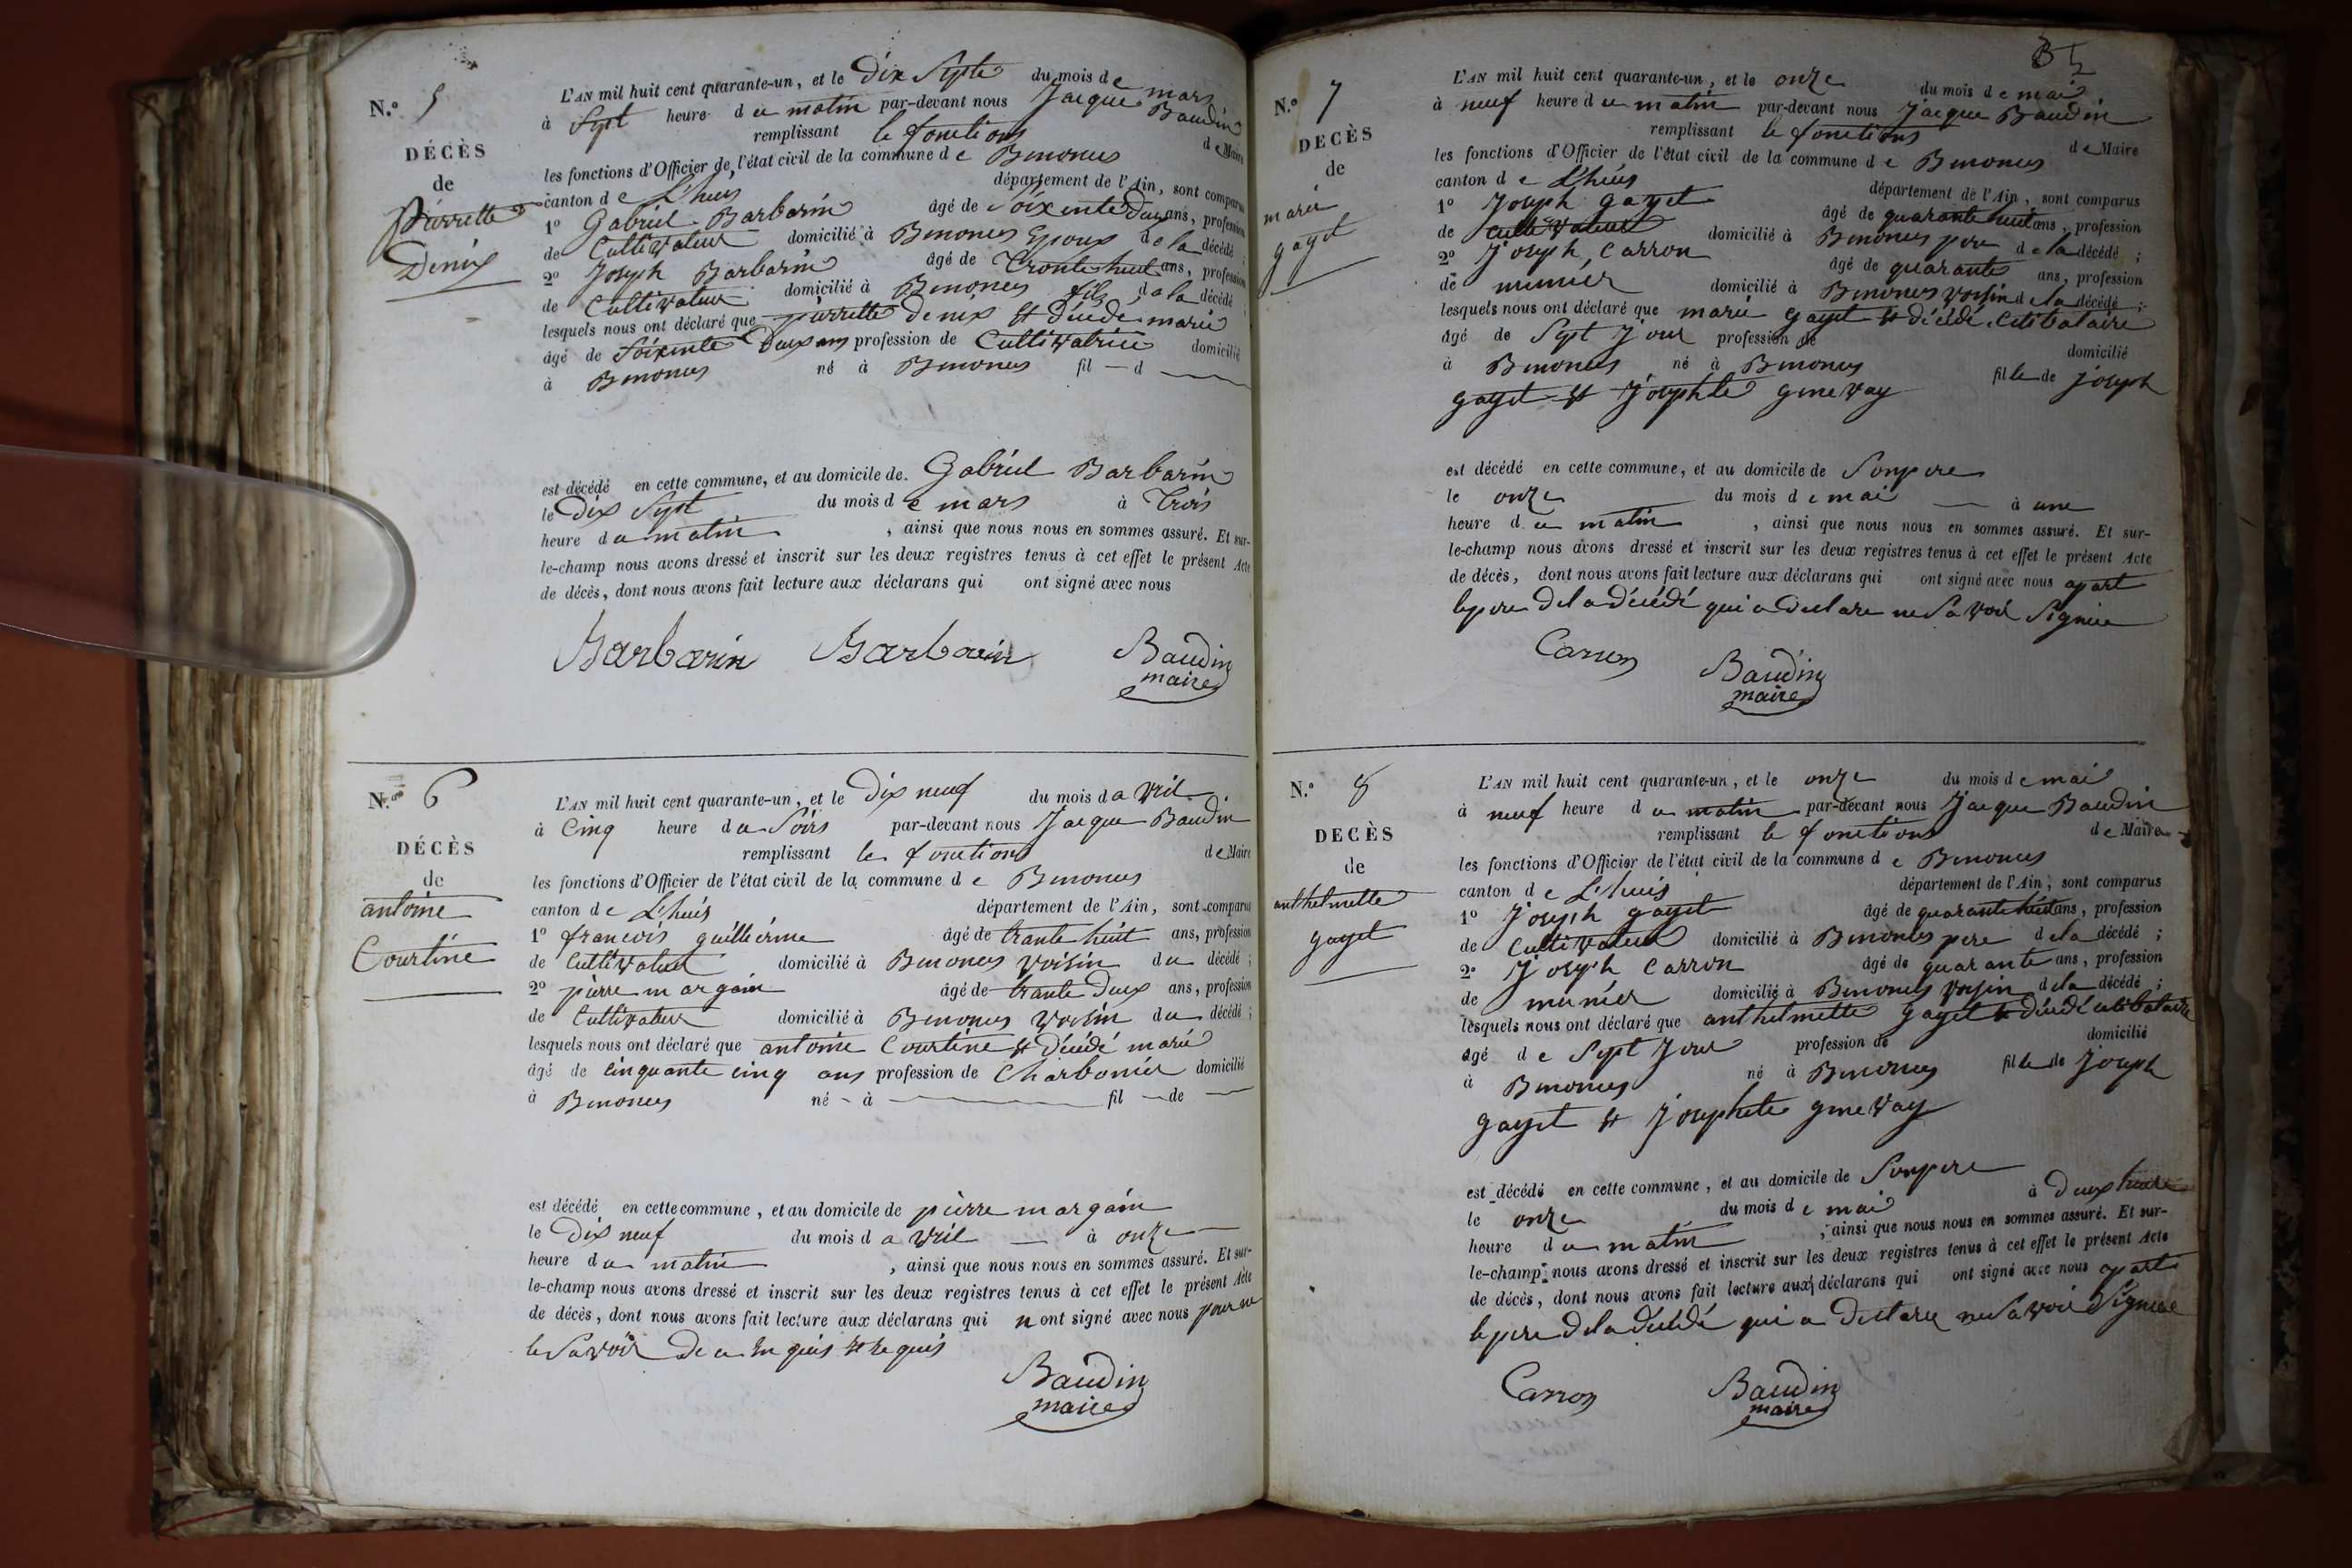 N.º 5
DÉCÈS
de
pierrette
Denix
L'AN mil huit cent quarante-un, et le Dix Septe du mois de mars
à Sept heure du matin par-devant nous Jacque Baudin
remplissant le fonctions de Maire
les fonctions d'Officier de l'état civil de la commune de Benonces
canton de L'huis département de l'Ain, sont comparus
1º Gabriel Barbarin âgé de Soixente Deux ans, profession
de Cultivateur domicilié à Benonces Epoux de la décédé ;
2º Joseph Barbarin âgé de Trente huit ans, profession
de Cultivateur domicilié à Benonces fils de la décédé
lesquels nous ont déclaré que pierrette Denix est décédé marié
âgé de Soixente Deux ans profession de Cultivatrice domicilié
à Benonces né à Benonces fil — d —
est décédé en cette commune, et au domicile de Gabriel Barbarin
le Dix Sept du mois de mars à Trois
heure du matin , ainsi que nous nous en sommes assuré. Et sur-
le-champ nous avons dressé et inscrit sur les deux registres tenus à cet effet le présent Acte
de décès, dont nous avons fait lecture aux déclarans qui ont signé avec nous
Barbarin Barbarin Baudin
maire
N.º 6
DÉCÈS
de
antoine
Courtine
L'AN mil huit cent quarante-un, et le Dix neuf du mois d avril
à Cinq heure du Soirs par-devant nous Jacque Baudin
remplissant les fonctions de Maire
les fonctions d'Officier de l'état civil de la commune de Benonces
canton de L'huis département de l'Ain, sont comparus
1º francois guillerme âgé de trante huit ans, profession
de Cultivateur domicilié à Benonces voisin du décédé ;
2º pierre margain âgé de trante Deux ans, profession
de Cultivateur domicilié à Benonces voisin du décédé ;
lesquels nous ont déclaré que antoine Courtine est décédé marié
âgé de cinquante cinq ans profession de Charbonier domicilié
à Benonces né - à — fil — de —
est décédé en cette commune, et au domicile de pierre margain
le Dix neuf du mois d avril — à onze
heure du matin , ainsi que nous nous en sommes assuré. Et sur-
le-champ nous avons dressé et inscrit sur les deux registres tenus à cet effet le présent Acte
de décès, dont nous avons fait lecture aux déclarans qui n ont signé avec nous pour ne
le Savoir de requis
Baudin
maire
N.º 7
DÉCÈS
de
marie
gayet
L'AN mil huit cent quarante-un, et le onze du mois de mai
à neuf heure du matin par-devant nous Jacque Baudin
remplissant le fonctions de Maire
les fonctions d'Officier de l'état civil de la commune de Benonces
canton de L'huis département de l'Ain, sont comparus
1º Joseph gayet âgé de quarante huit ans, profession
de cultivateur domicilié à Benonces pere de la décédé ;
2º Joseph Carron âgé de quarante ans, profession
de munier domicilié à Benonces voisin de la décédé ;
lesquels nous ont déclaré que marie gayet est décédé Celibataire
âgé de Sept Jour profession de domicilié
à Benonces né à Benonces fille de joseph
gayet et Josephte genevay
est décédé en cette commune, et au domicile de Son pere
le onze du mois de mai — à une
heure du matin , ainsi que nous nous en sommes assuré. Et sur-
le-champ nous avons dressé et inscrit sur les deux registres tenus à cet effet le présent Acte
de décès, dont nous avons fait lecture aux déclarans qui ont signé avec nous apart
le pere de la décédé qui a declare ne Savoir Signier
Carron Baudin
maire
N.º 8
DECÈS
de
anthelmette
gayet
L'AN mil huit cent quarante-un, et le onze du mois de mai
à neuf heure du matin par-devant nous Jacque Baudin
remplissant le fonctions de Maire
les fonctions d'Officier de l'état civil de la commune de Benonces
canton de L'huis département de l'Ain, sont comparus
1º Joseph gayet âgé de quarante huit ans, profession
de Cultivateur domicilié à Benonces pere de la décédé ;
2º Joseph Carron âgé de quarante ans, profession
de munier domicilié à Benonces voisin de la décédé ;
lesquels nous ont déclaré que anthelmette gayet est décédé celibataire
âgé de Sept Jour profession de domicilié
à Benonces né à Benonces fille de Joseph
gayet et Josephete genevay
est décédé en cette commune, et au domicile de Son pere
le onze du mois de mai à Deux heure
heure du matin , ainsi que nous nous en sommes assuré. Et sur-
le-champ nous avons dressé et inscrit sur les deux registres tenus à cet effet le présent Acte
de décès, dont nous avons fait lecture aux déclarans qui ont signé avec nous apart
le pere de la décédé qui a Declare ne Savoir Signier
Carron Baudin
maire